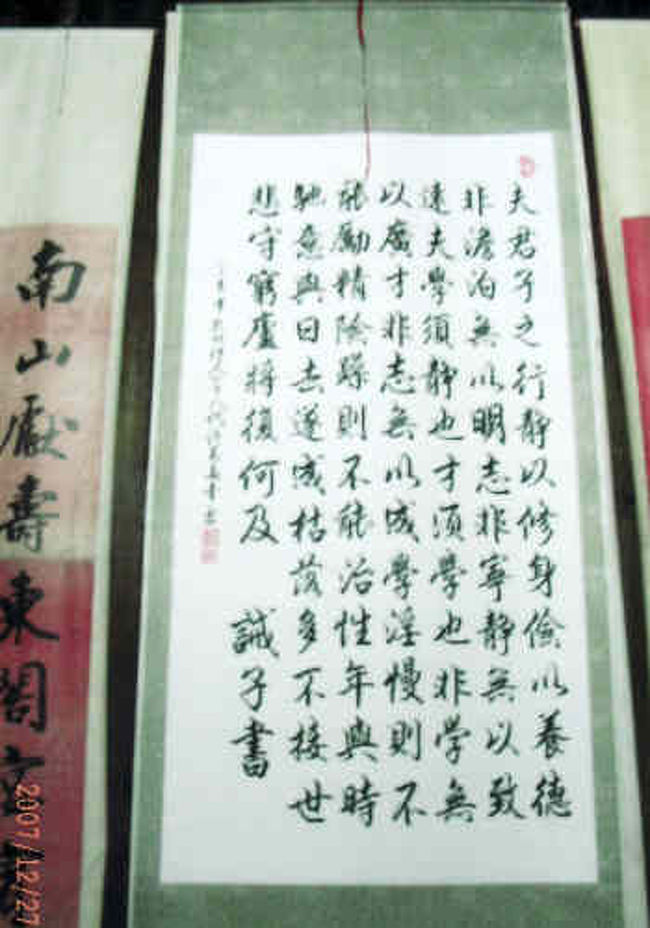 夫君子之行靜以修身儉以養德
非澹泊無以明志非寧靜無以致
遠夫學須靜也才須學也非學無
以廣才非志無以成學淫慢則不
能勵精險躁則不能治性年與時
馳意與日去遂成枯落多不接世
悲守窮廬將復何及 誡子書
南山獻壽東閣
2007/12/27